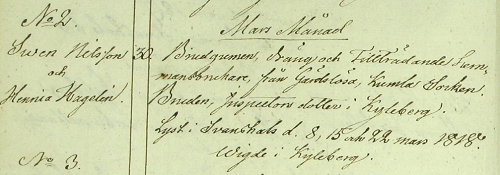 Mars Månad
No 2.
Swen Nilsson 30. Brudgumen, dräng och Tillträdande
och mansbrukare, från Gärdslösa, Kumla Socken.
Hennia Hagelin. Bruden, Inspectors dotter i Kyleberg.
Lyst i Svanshals d. 8, 15 och 22 mars 1818.
Wigde i Kyleberg.
No 3.